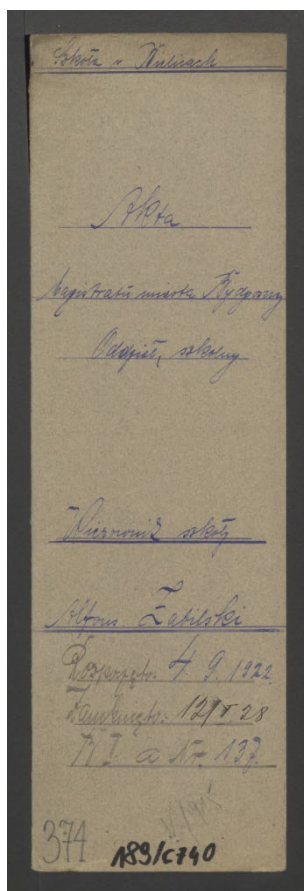 Szkoła w Bielicach
Akta
Magistratu miasta Bydgoszczy
Oddział szkolny
Kierownik szkoły
Alfons Zabilski
Rozpoczęto: 4. 9. 1922
Zamknięto: 12/V. 28
Nr. 137
374
189/C740